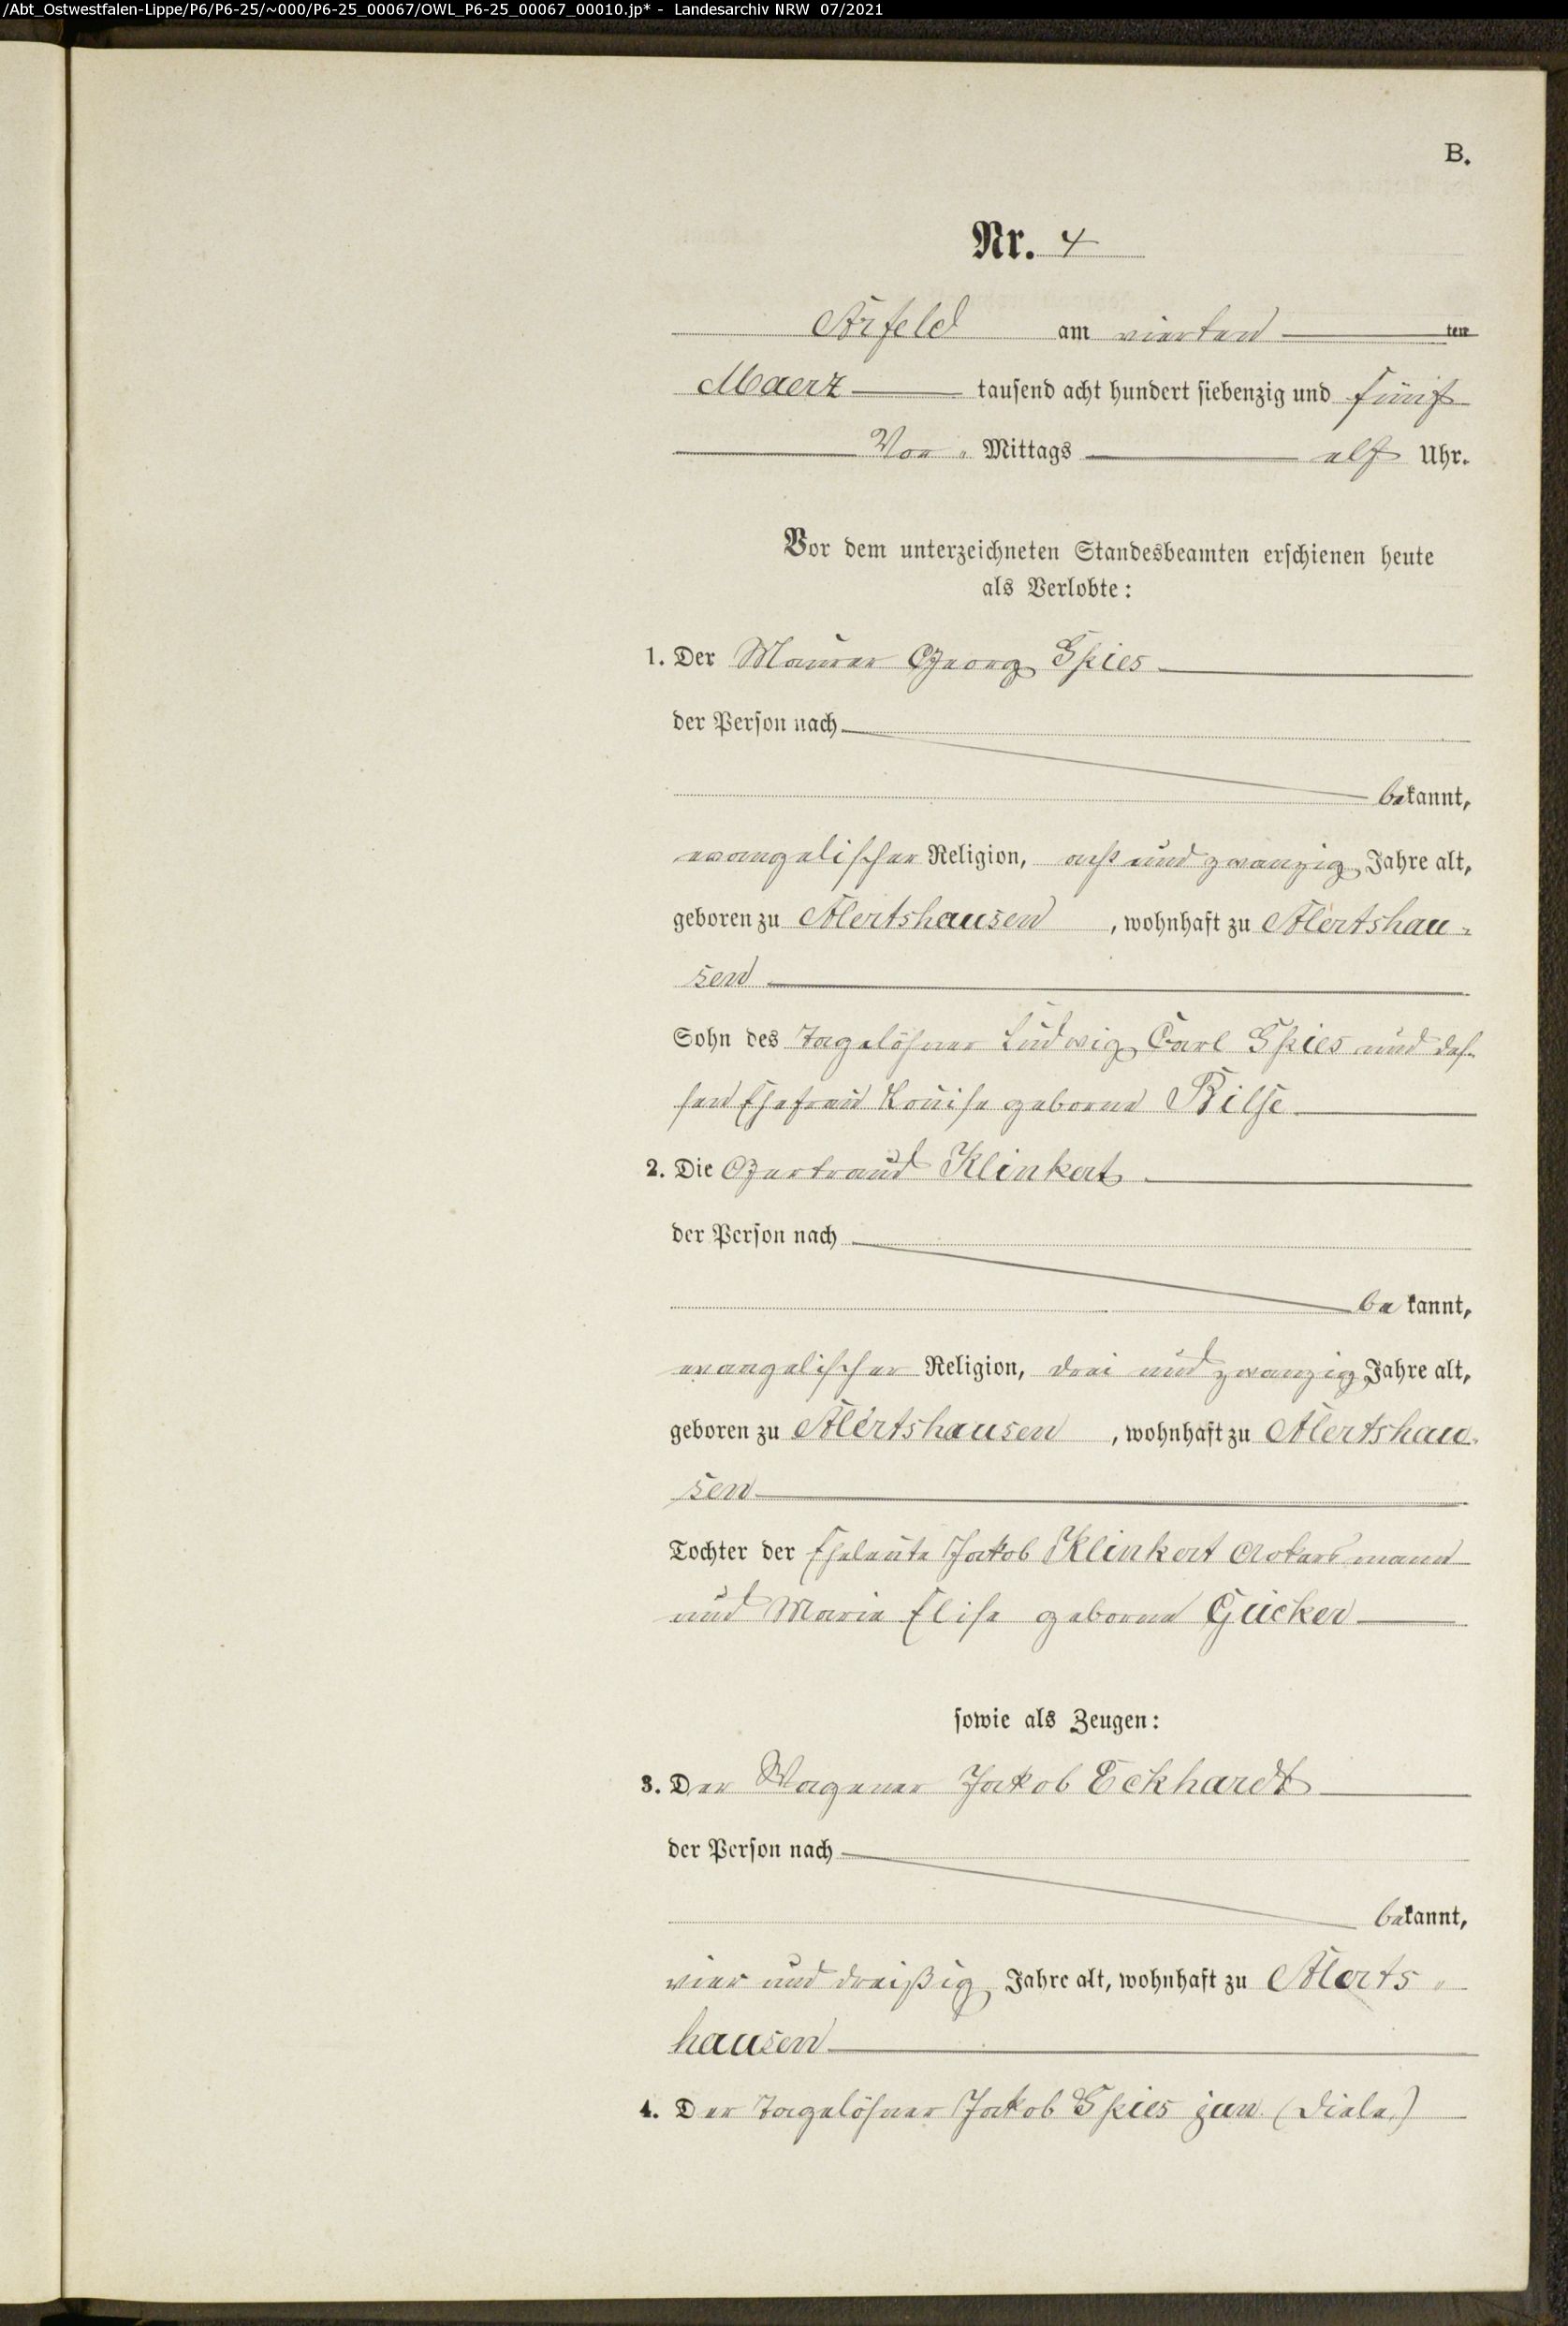 /Abt_Ostwestfalen-Lippe/P6/P6-25/~000/P6-25_00067/OWL_P6-25_00067_00010.jp* - Landesarchiv NRW 07/2021
B.
Nr. 4
Arfeld am vierten ten
Maerz tausend acht hundert siebenzig und fünf
Vor - Mittags elf Uhr.
Vor dem unterzeichneten Standesbeamten erschienen heute
als Verlobte:
1. Der Maurer Georg Spies
der Person nach
bekannt,
evangelischer Religion, acht und zwanzig Jahre alt,
geboren zu Alertshausen , wohnhaft zu Alertshau-
sen
Sohn des Tagelöhner Ludwig Carl Spies und des-
sen Ehefrau Louise geborne Bilse
2. Die Gertraud Klinkert
der Person nach
bekannt,
evangelischer Religion, drei und zwanzig Jahre alt,
geboren zu Alertshausen , wohnhaft zu Alertshau-
sen
Tochter der Eheleute Jakob Klinkert Ackersmann
und Marie Elise geborne Gücker
sowie als Zeugen:
3. Der Wagener Jakob Eckhardt
der Person nach
bekannt,
vier und dreißig Jahre alt, wohnhaft zu Alerts-
hausen
4. Der Tagelöhner Jakob Spies jun. (Diele)